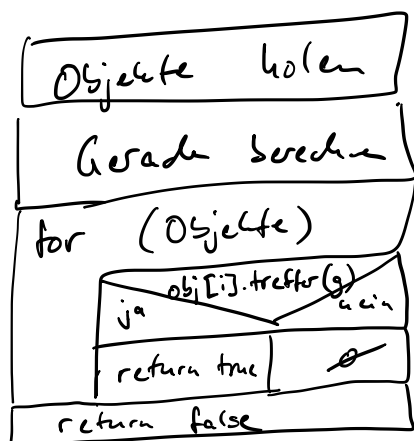 Objekte holen
Gerade berechnen
for (Objekte)
obj[i].treffer(g)
ja nein
return true ∅
return false